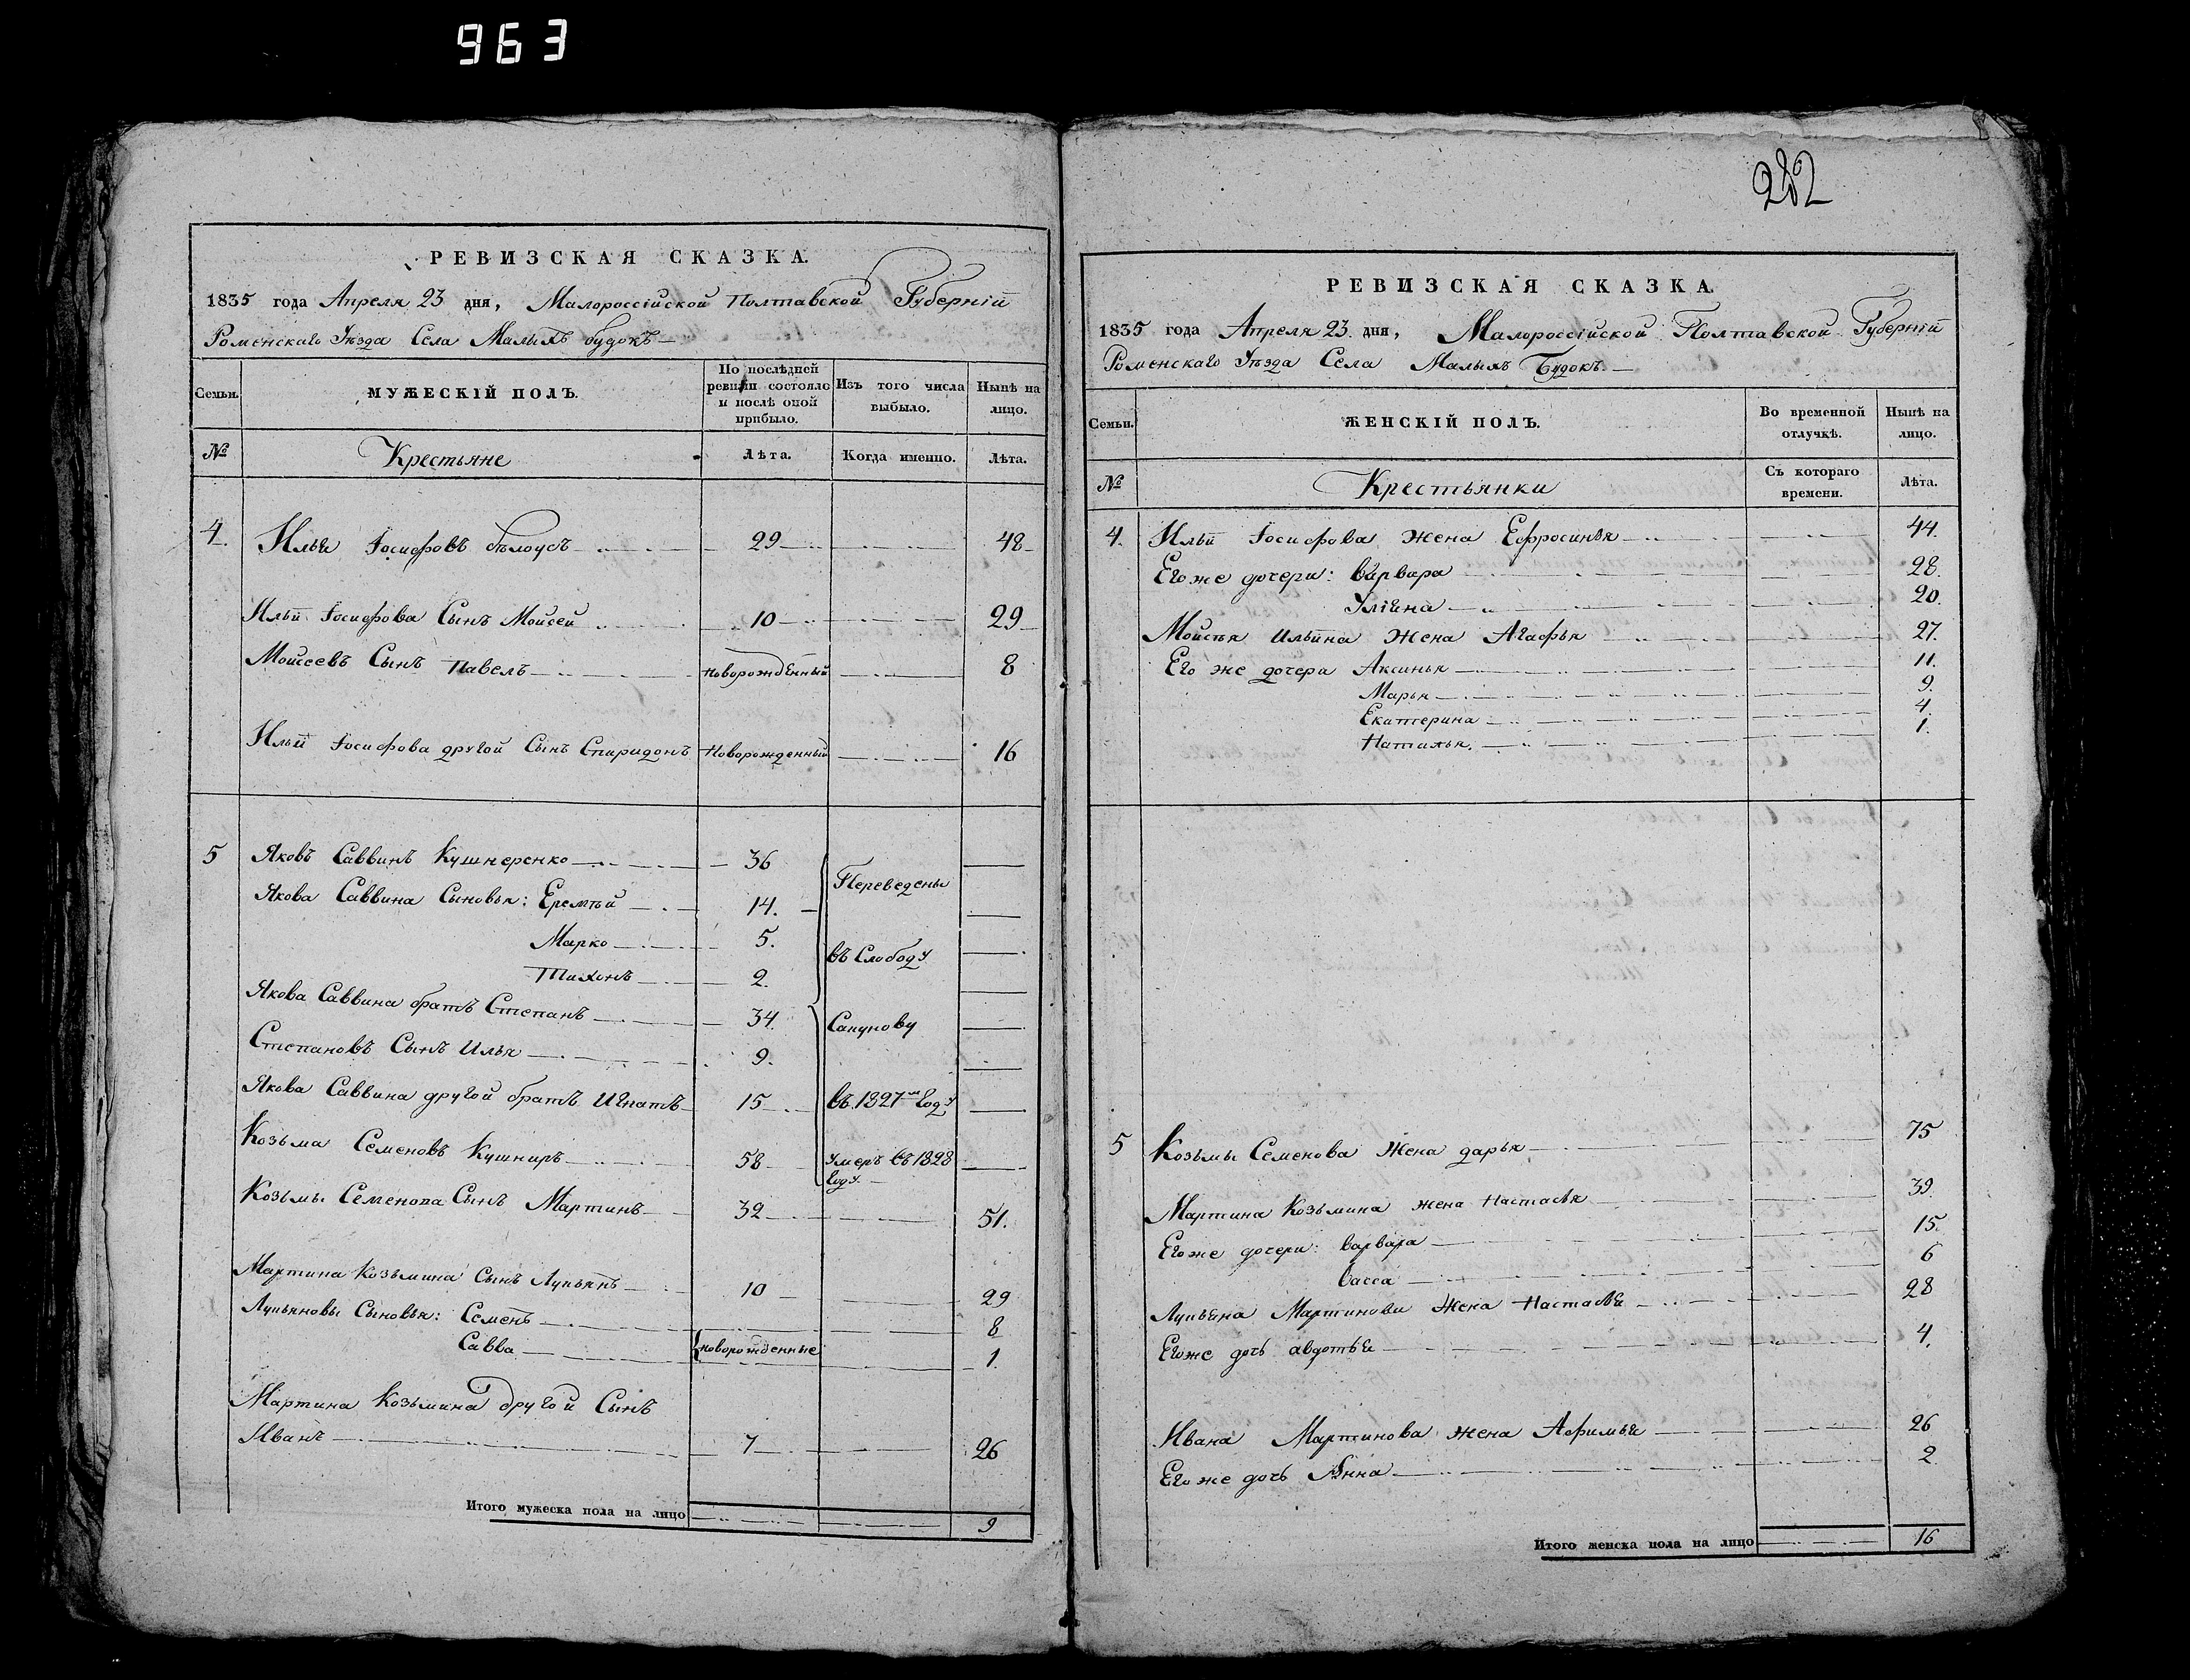 963
РЕВИЗСКАЯ СКАЗКА.
1835 года Апреля 23 дня, Малороссійской Полтавской Губерніи
Роменскаго Уѣзда Села Малыхъ будокъ
Семьи.
МУЖЕСКІЙ ПОЛЪ.
По послѣдней ревизіи состояло и послѣ оной прибыло.
Изъ того числа выбыло.
Нынѣ на лицо.
№
Крестьяне
Лѣта.
Когда именно.
Лѣта.
4. Илья Іосифовъ бѣлоусъ 29 48
Ильи Іосифова Сынъ Мойсей 10 29
Мойсеевъ Сынъ Павелъ новорожденный 8
Ильи Іосифова другой Сынъ Спиридонъ Новорожденный 16
5 Яковъ Саввинъ Кушнеренко 36 Переведены
Якова Саввина Сыновья: Еремѣй 14.
Марко 5. въ Слободу
Тихонъ 2.
Якова Саввина братъ Степанъ 34. Сакунову
Степановъ Сынъ Илья 9.
Якова Саввина другой братъ Игнатъ 15 въ 1827мъ Году
Козьма Семеновъ Кушниръ 58 умеръ въ 1828
Году.
Козьмы Семенова Сынъ Мартинъ 32 51.
Мартина Козьмина Сынъ Лукьянъ 10 29
Лукьяновы Сыновья: Семенъ 8
Савва новорожденные 1.
Мартина Козьмина другой Сынъ
Иванъ 7 26
Итого мужеска пола на лицо 9
282
РЕВИЗСКАЯ СКАЗКА.
1835 года Апреля 23. дня, Малороссійской Полтавской Губерніи
Роменскаго Уѣзда Села Малыхъ Будокъ.
Семьи.
ЖЕНСКІЙ ПОЛЪ.
Во временной отлучкѣ.
Нынѣ на лицо.
№
Крестьянки
Съ котораго времени.
Лѣта.
4. Ильи Іосифова жена Ефросинья 44.
Его же дочери: Варвара 28.
Уліяна 20.
Мойсѣя Ильина жена Агафья 27.
Его же дочери Аксинья 11.
Марья 9.
Екатерина 4.
Наталья. 1.
5 Козьмы Семенова Жена дарья 75
Мартина Козьмина жена Настасья 39.
Его же дочери: Варвара 15.
Васса 6
Лукьяна Мартинова Жена Настасья 28
Его же дочь авдотья 4.
Ивана Мартинова жена Афимья 26
Его же дочь Анна 2
Итого женска пола на лицо 16